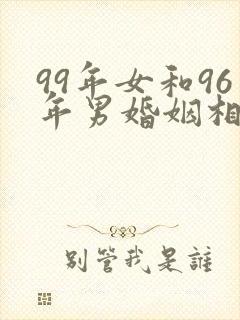 99年女和96
年男婚姻相
别管我是誰